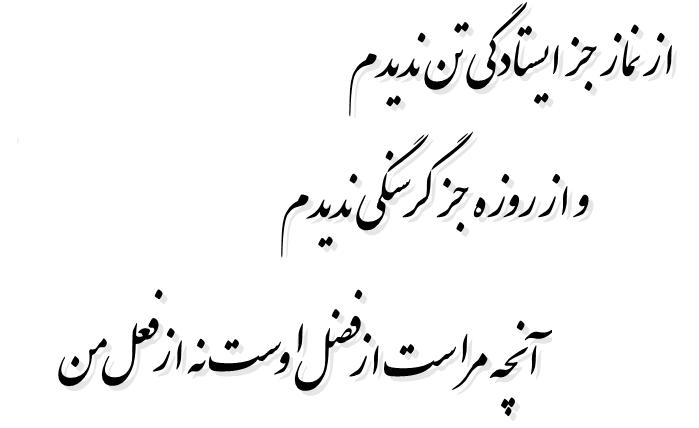 از نماز جز ایستادگی تن ندیدم
و از روزه جز گرسنگی ندیدم
آنچه مراست از فضل اوست نه از فعل من